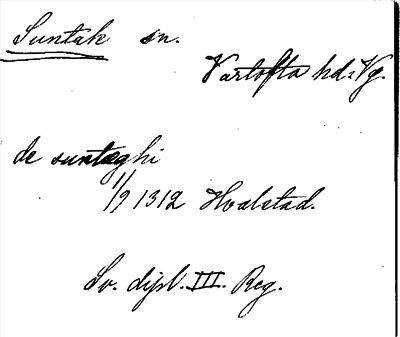 Suntak sn.
Vartofta hd. Vg.
de suntæghi
11/9 1312 Hvalstad.
Sv. dipl. III. Reg.